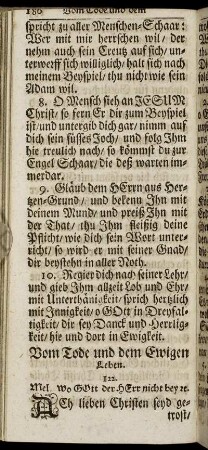 186 Vom Tode und dem
spricht zu aller Menschen-Schaar:
Wer mit mir herrschen wil/ der
nehm auch sein Creutz auf sich/ un-
terwerff sich williglich/ halt sich nach
meinem Beyspiel/ thu nicht wie sein
Adam wil.
8. O Mensch sieh an JESUM
Christ/ so fern Er dir zum Beyspiel
ist/ und untergib dich gar/ nimm auf
dich sein süsses Joch/ und folg Jhm
hie treulich nach/ so kömmst du zur
Engel Schaar/ die deß warten im-
merdar.
9. Gläub dem HErrn aus Her-
tzen-Grund/ und bekenn Jhn mit
deinem Mund/ und preiß Jhn mit
der That/ thu Jhm fleissig deine
Pflicht/ wie dich sein Wort unter-
richt/ so wird er mit seiner Gnad/
dir beystehn in aller Noth.
10. Regier dich nach seiner Lehr/
und gieb Jhm allzeit Lob und Ehr/
mit Unterthänigkeit/ sprich hertzlich
mit Jnnigkeit/ o GOtt in Dreyfal-
tigkeit/ dir sey Danck und Herrlig-
keit/ hie und dort in Ewigkeit.
Vom Tode und dem Ewigen
Leben.
122.
Mel. Wo GOtt der HErr nicht bey ꝛc.
ACh lieben Christen seyd ge-
trost/